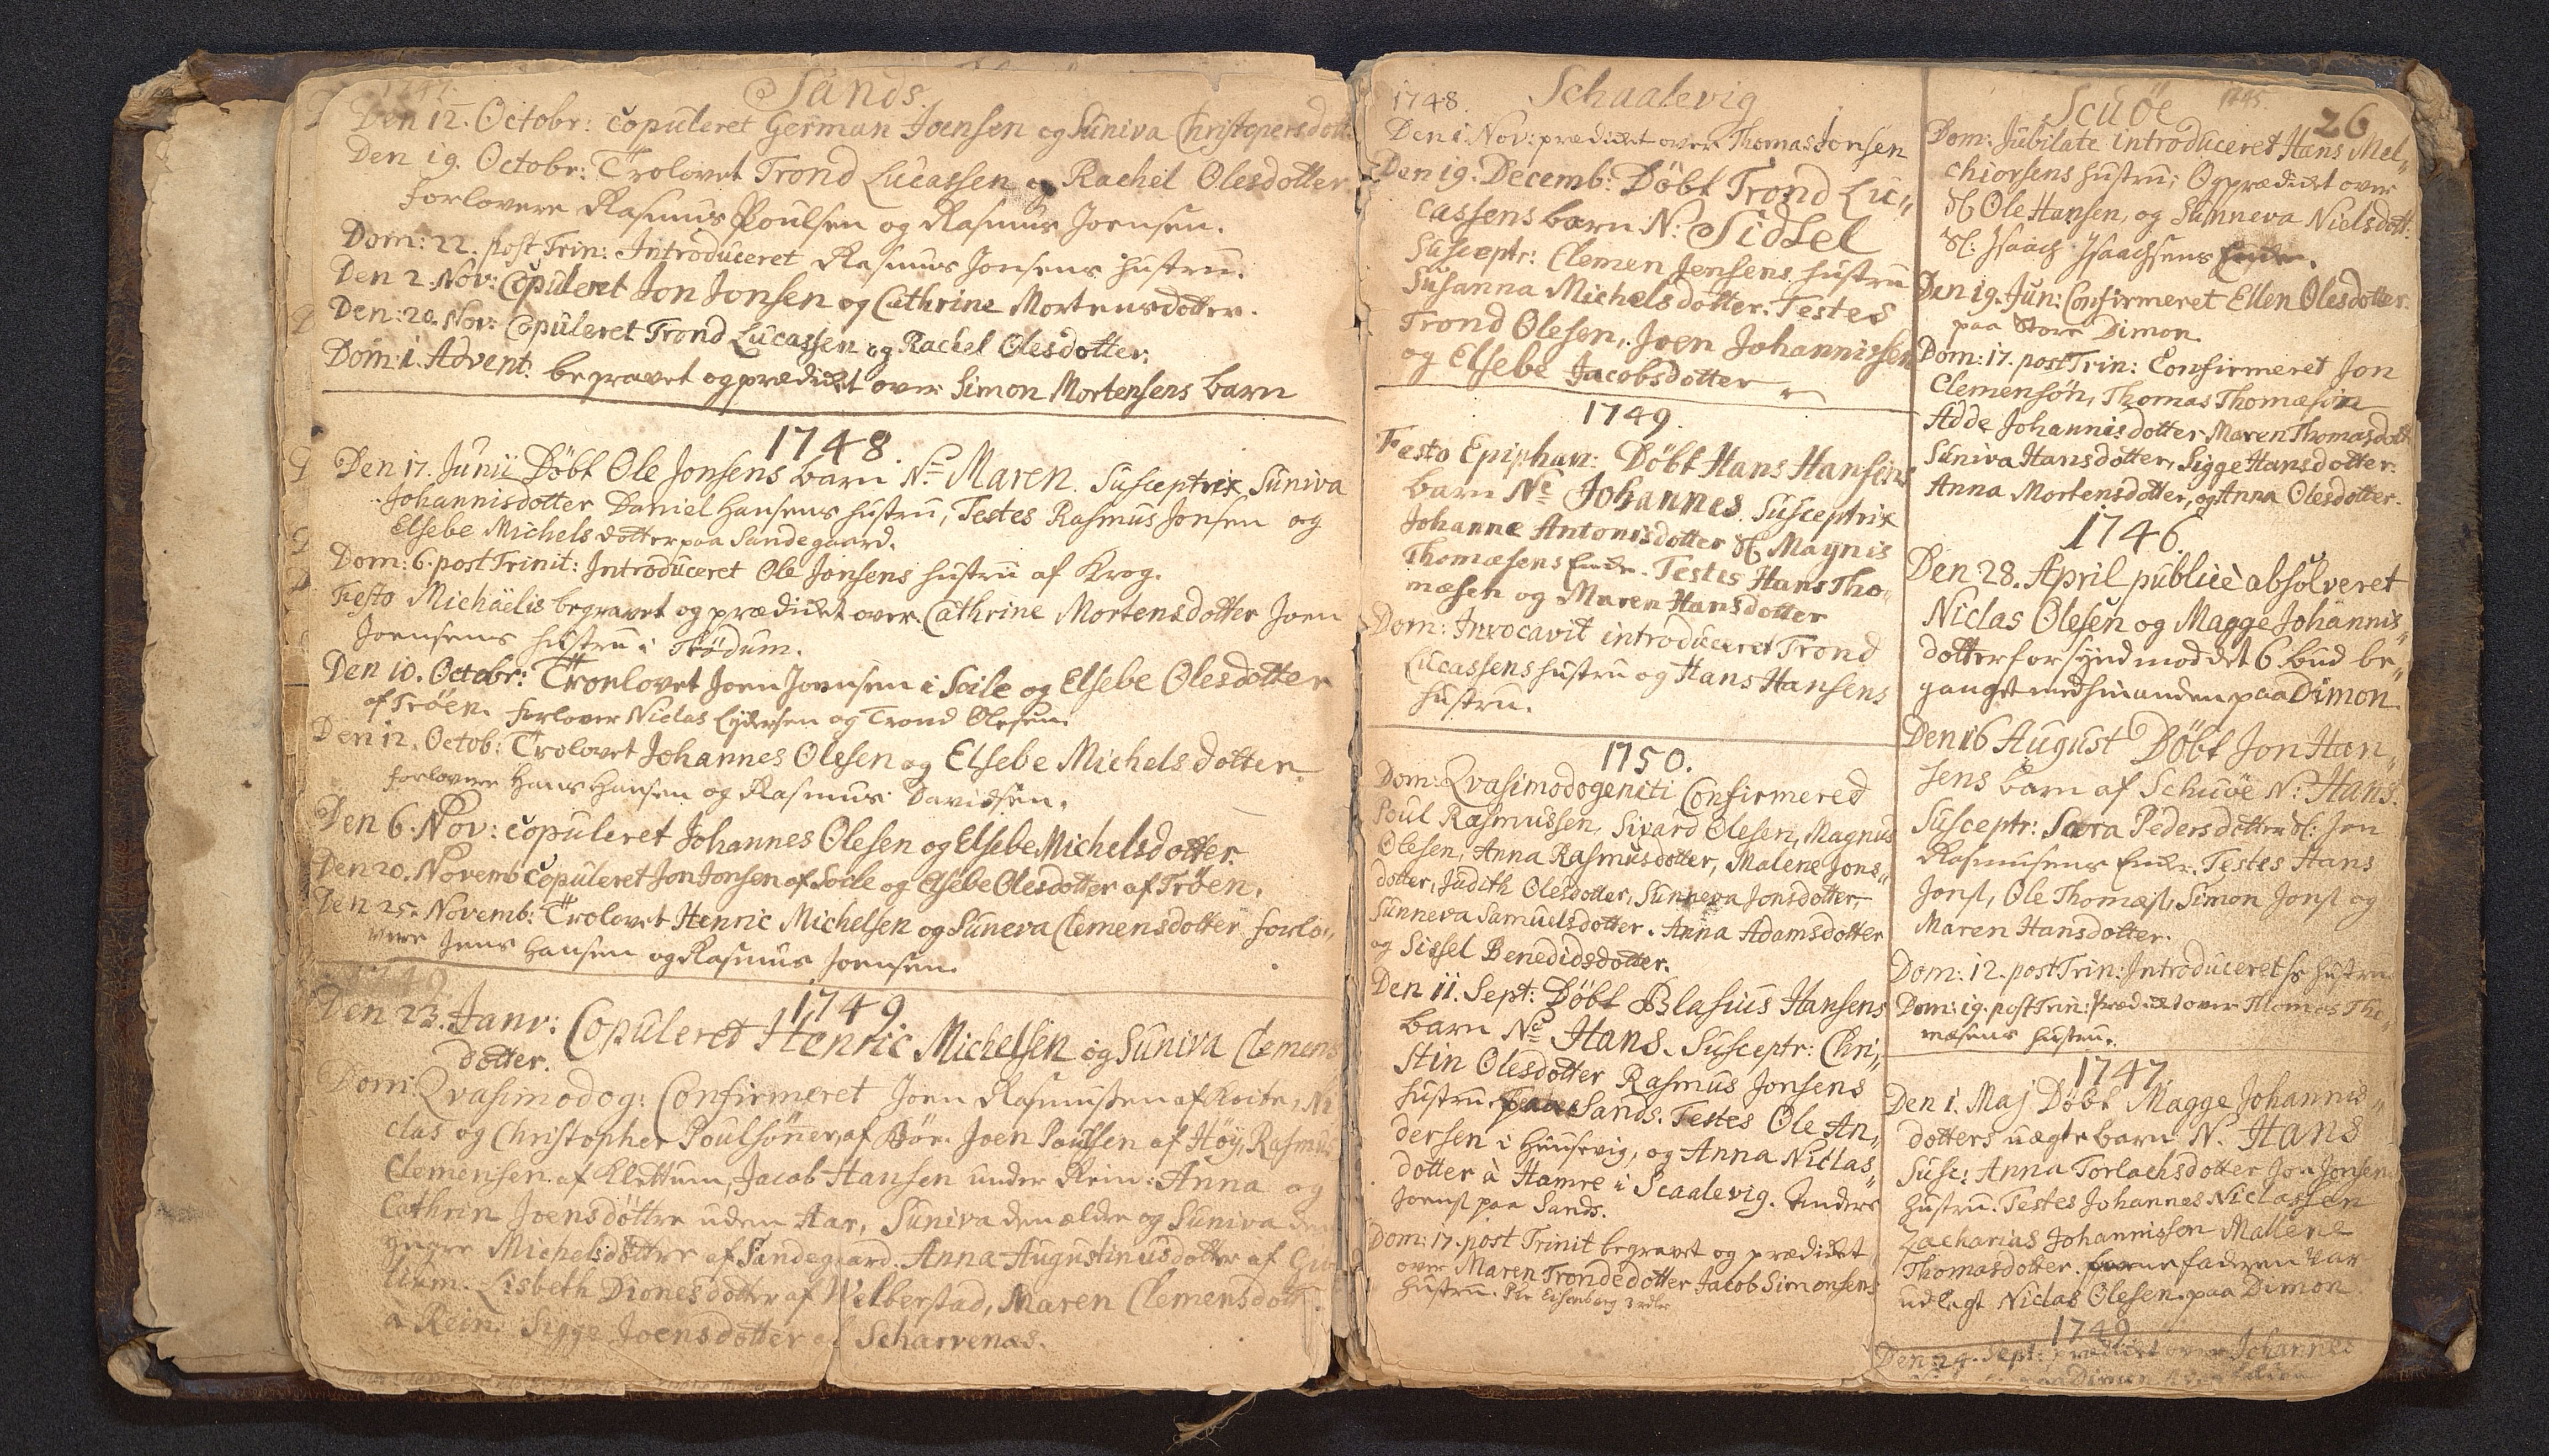 1747.
Sands.
Den 12. Octobr: copuleret German Joensen og Suniva Christopersdott
Den 19. Octobr: Trolovet Trond Lucassen og Rachel Olesdotter
forlovere Rasmus Poulsen og Rasmus Joensen.
Dom: 22. post Trin: Introduceret Rasmus Jonsens hustru.
Den 2. Nov: Copuleret Jon Jonsen og Cathrine Mortensdotter.
Den: 20. Nov: Copuleret Trond Lucassen og Rachel Olesdotter.
Dom: 1. Advent: begravet og prædicket over Simon Mortensens barn
1748.
Den 17. Junii Döbt Ole Jonsens barn N: Maren. Susceptrix Suniva
Johannisdotter Daniel Hansens hustru, Testes Rasmus Jonsen og
Elsebe Michelsdotter paa Sandegaard.
Dom: 6. post Trinit: Introduceret Ole Jonsens hustru af Krog.
Festo Michäelis begravet og prædicket over Cathrine Mortensdotter Joen
Joensens hustru i Trödum.
Den 10. Octobr: Troelovet Joen Joensen i Soile og Elsebe Olesdotter
af Tröen. forlover Niclas Eydersen og Trond Olesen.
Den 12. Octob: Trolovet Johannes Olesen og Elsebe Michelsdotter.
forlovere Hans Hansen og Rasmus Davidsen.
Den 6. Nov: copuleret Johannes Olesen og Elsebe Michelsdotter.
Den 20. Novemb copuleret Jon Jonsen af Soile og Elsebe Olesdotter af Tröen.
Den 25. Novemb: Trolovet Henric Michelsen og Suneva Clemensdotter forlo„
vere Jens Hansen og Rasmus Joensen.
1749
Den 23. Janv: Copuleret Henric Michelsen og Suniva Clemens
dotter.
Dom: Qvasimodog: Confirmeret Joen Rasmussen af Kvite, Ni
clas og Christopher Poulsönner, af Bör. Joen Paulsen af Höy, Rasmus
Clemensen af Klettum, Jacob Hansen under Rein. Anna og
Cathrin Joensdöttre uden Aar, Suniva den ælder og Suniva den
yngre Michelsdöttre af Sandegaard. Anna Augustinusdotter af
Lisbeth Dionesdotter af Welberstad, Maren Clemensdott
a Rein. Sigge Joensdotter af Scharvenæs.
1748. Schaalevig
Den 1. Nov: prædicket over Thomas Jonsen
Den 19. Decemb: Döbt Trond Lu„
cassens barn N: Sidsel
Susceptr: Clemen Jensens hustru
Susanna Michelsdotter. Testes
Trond Olesen, Joen Johannissen
og Elsebe Jacobsdotter
1749.
Festo Epiphan: Döbt Hans Hansens
barn N: Johannes. Susceptrix
Johanne Antonisdotter Sl. Maynis
Thomæsens Enke. Testes Hans Tho„
mæsen og Maren Hansdotter
Dom: Invocavit introduceret Trond
Lucassens hustru og Hans Hansens
hustru.
1750.
Dom: Qvasimodogeniti Confirmered
Poul Rasmussen, Sivard Olesen, Magnus
Olesen, Anna Rasmusdotter, Malene Jons„
dotter, Judith Olesdotter, Sunneva Jonsdotter,
Sunneva Samuelsdotter. Anna Adamsdotter
og Sissel Benedidsdotter.
Den 11. Sept: Döbt Blasius Hansens
barn N: Hans. Susceptr: Chri„
stin Olesdotter Rasmus Jonsens
hustru paa Sands. Testes Ole An„
dersen i Huusevig, og Anna Niclas„
dotter à Hamre i Scaalevig. Anders
Joens paa Sands.
Dom: 17. post Trinit begravet og prædicket
over Maren Trondedotter Jacob Simonsens
hustru.
Scuöe 1745.
26
Dom: Jubilate introduceret Hans Mel„
chiorsens hustru; Og prædicket over
Sl. Ole Hansen, og Sunneva Nielsdott:
Sl: Isaach Isaachsens Enke.
Den 19. Jun: Confirmeret Ellen Olesdotter
paa Store Dimon.
Dom: 17. post Trin: Confirmeret Jon
Clemensön, Thomas Thomæsön
Adde Johannisdotter Maren Thomasdott
Suniva Hansdotter, Sigge Hansdotter.
Anna Mortensdotter, og Anna Olesdotter.
1746.
Den 28. April publicè absolveret
Niclas Olesen og Magge Johannis„
dotter for synd mod det 6 bud be„
ganget med hinanden paa Dimon.
Den 16 August Döbt Jon Han„
sens barn af Schuöe N: Hans.
Susceptr: Sara Pedersdotter Sl: Jon
Rasmusens Enke. Testes Hans
Jons, Ole Thomæs, Simon Jons og
Maren Hansdotter.
Dom: 12. post Trin: Introduceret hs hustru
Dom: 19. post Trin: Prædicket over Thomas Tho„
mæsens hustru.
1747.
Den 1. Maj Döbt Magge Johannis„
dotters uægte barn N. Hans
Susc: Anna Torlachsdotter Jon Jonsens
hustru. Testes Johannes Niclassen
Zacharias Johannisson Mallene
Thomasdotter. faderen var
udlagt Niclas Olesen paa Dimon
1749
Den 24. Sept: prædicket over Johannes
paa Dimon